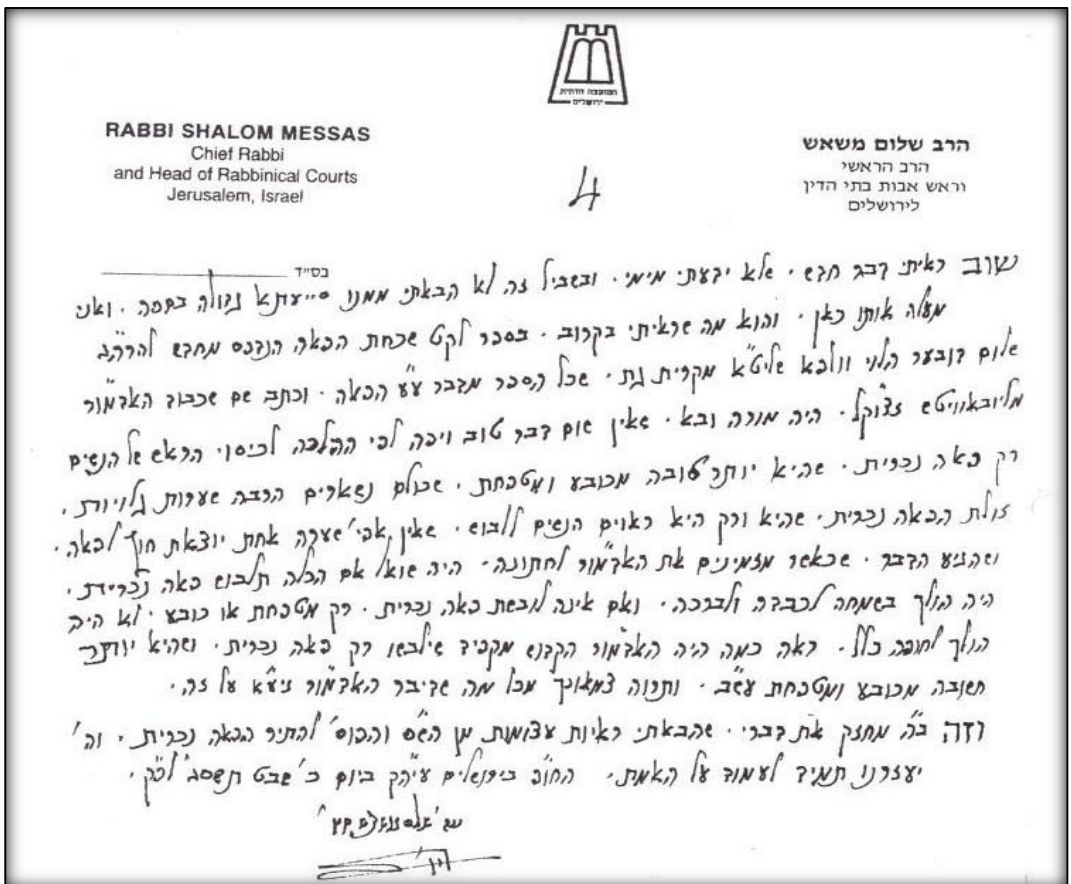 המועצה הדתית
ירושלים
RABBI SHALOM MESSAS
Chief Rabbi
and Head of Rabbinical Courts
Jerusalem, Israel
הרב שלום משאש
הרב הראשי
וראש אבות בתי הדין
לירושלים
4
בס"ד
שוב ראיתי דבר חדש. שלא ידעתי מימי. ובשביל זה לא הבאתי ממנו סייעתא גדולה בספה. ואני
מעלה אותו כאן. והוא מה שראיתי בקרוב. בספר לקט שכחת הפאה הנדפס מחדש להרה"ג
שלום דובער הלוי וולפא שליט"א מקרית גת. שכל הספר מדבר ע"ע הפאה. וכתב שם שכבוד האדמו"ר
מליובאוויטש זצוק"ל. היה מורה ובא. שאין שום דבר טוב ויפה לפי ההלכה לכיסוי הראש של הנשים
רק פאה נכרית. שהיא יותר טובה מכובע ומטפחת. שכולם נשארים הרבה שערות גלויות.
זולת הפאה נכרית. שהיא ורק היא ראוים הנשים ללבוש. שאין אפי' שערה אחת יוצאת חוץ לפאה.
ושהגיע הדבר. שכאשר מזמינים את האדמו"ר לחתונה. היה שואל אם הכלה תלבוש פאה נכרית.
היה הולך בשמחה לכבדה ולברכה. ואם אינה לובשת פאה נכרית. רק מטפחת או כובע. לא היה
הולך לחופה כלל. ראה כמה היה האדמו"ר הקדוש מקפיד שילבשו רק פאה נכרית. ושהיא יותר
חשובה מכובע ומטפחת עש"ב. ותרוה צמאונך מכל מה שדיבר האדמו"ר זיע"א על זה.
וזה ב"ה מחזק את דברי. שהבאתי ראיות עצומות מן הש"ס והפוס' להתיר הפאה נכרית. וה'
יעזרנו תמיד לעמוד על האמת. החו"פ בירושלים עיה"ק ביום כ' שבט תשס"ג לפ"ק.